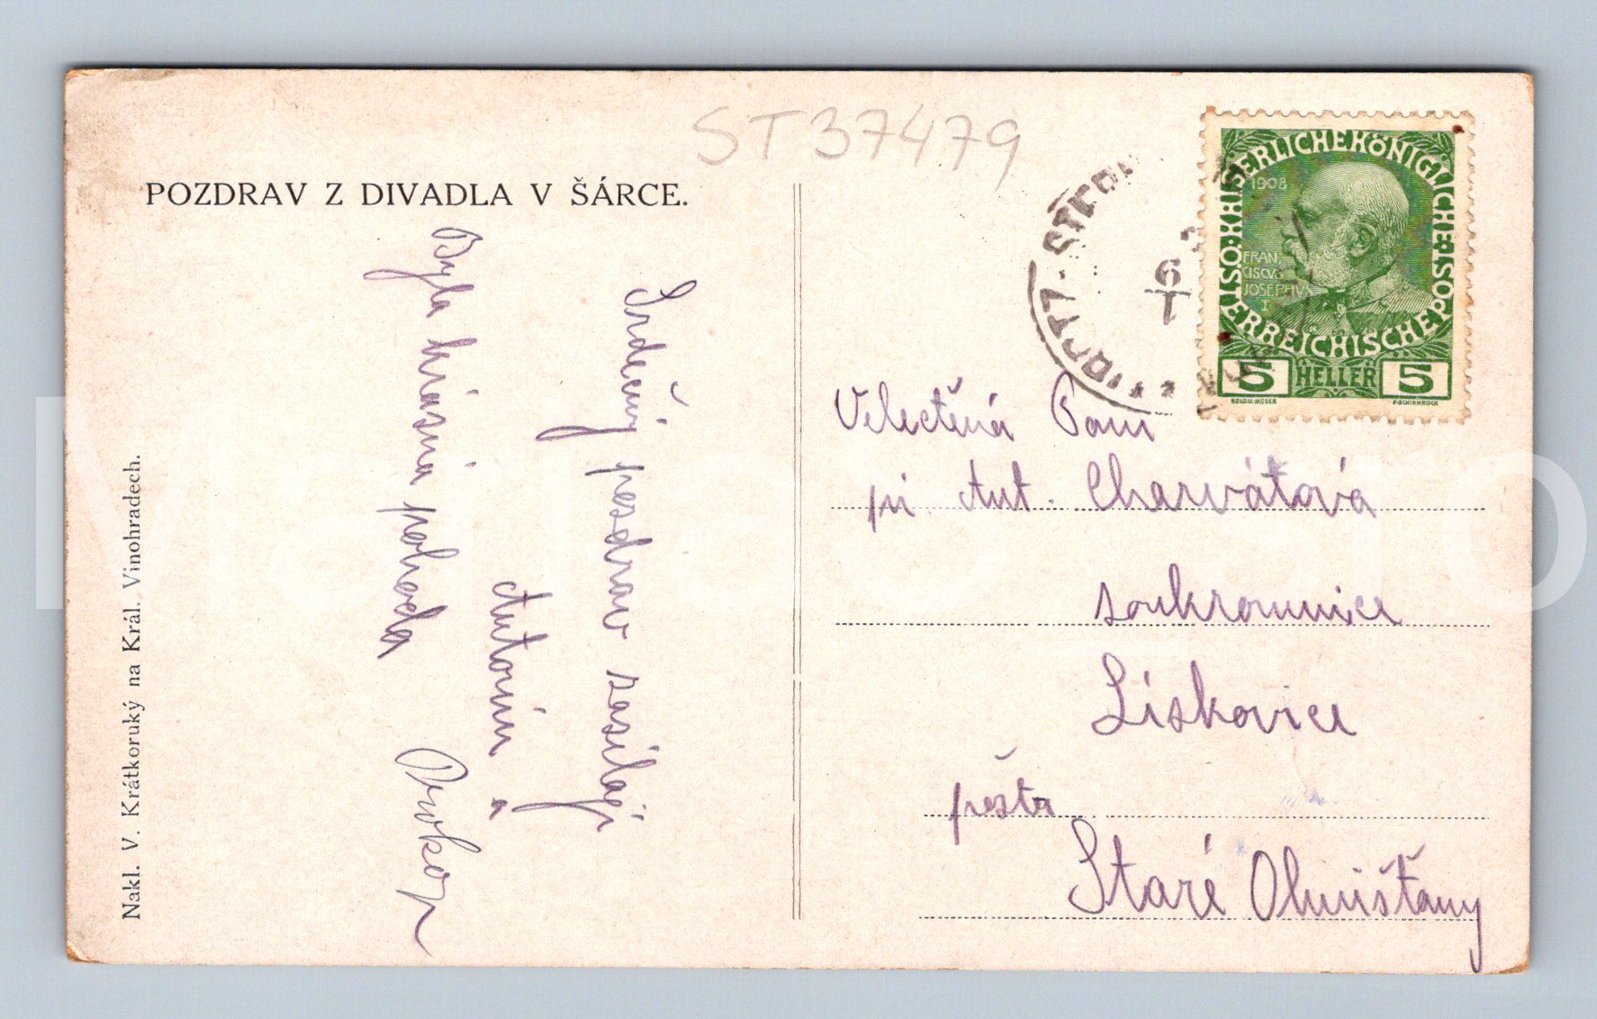 ST37479
POZDRAV Z DIVADLA V ŠÁRCE.
Srdečný pozdrav zasílají
Antonín a
Prokop
Byla krásná pohoda
Nakl. V. Krátkoruký na Král. Vinohradech.
KAISERLICHE KÖNIGLICHE ÖSTERREICHISCHE POST
1908
FRAN
CISCVS
JOSEPHVS
I
5 HELLER 5
6
I
Velectěná Paní
pí. Ant. Charvátová
soukromnice
Lískovice
pošta
Staré Ohništany